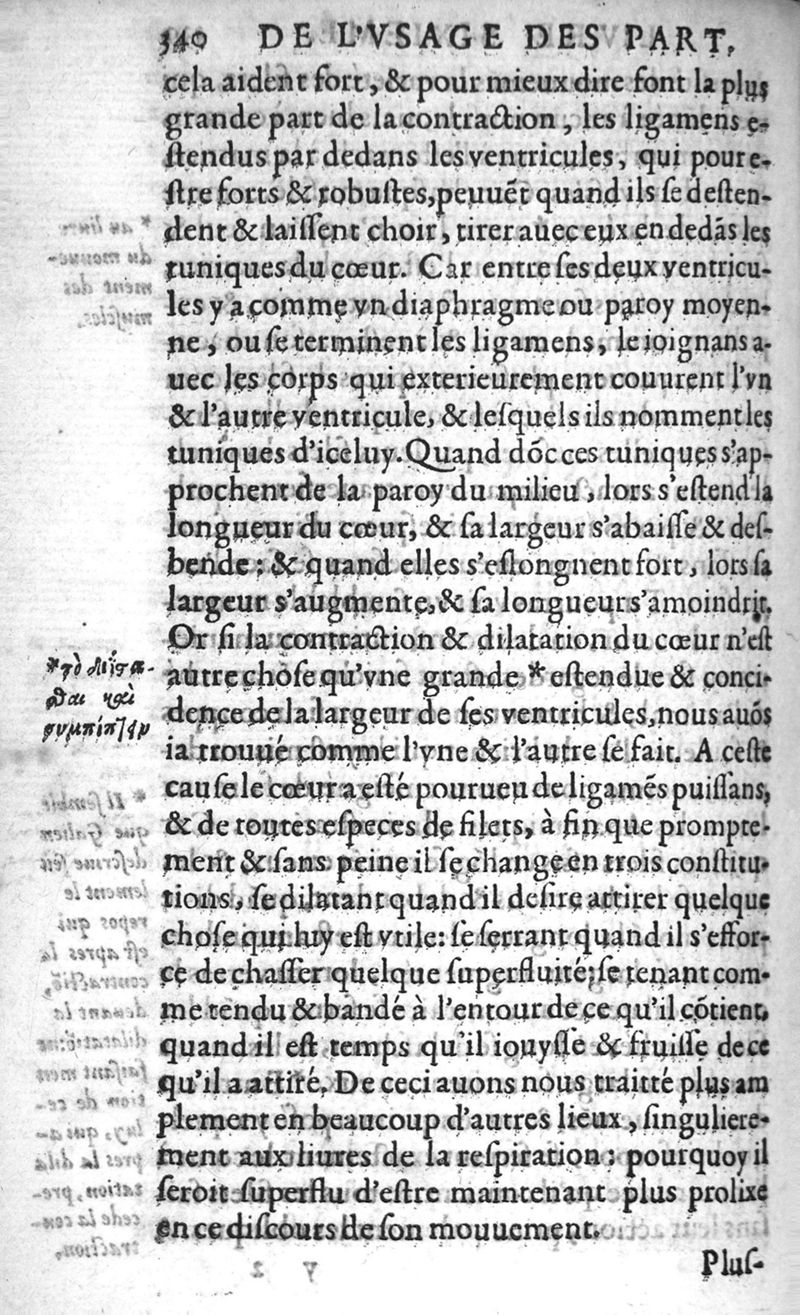 340 DE L'VSAGE DES PART.
cela aident fort, & pour mieux dire font la plus
grande part de la contraction, les ligamens e-
ſtendus par dedans les ventricules, qui pour e-
ſtre forts & robuſtes, peuuēt quand ils ſe deſten-
dent & laiſſent choir, tirer auec eux en dedās les
tuniques du cœur. Car entre ſes deux ventricu-
les y a comme vn diaphragme ou paroy moyen-
ne, ou ſe terminent les ligamens, le ioignans a-
uec les corps qui exterieurement couurent l'vn
& l'autre ventricule, & leſquels ils nomment les
tuniques d'iceluy. Quand dōc ces tuniques s'ap-
prochent de la paroy du milieu, lors s'eſtend la
longueur du cœur, & ſa largeur s'abaiſſe & deſ-
bende: & quand elles s'eſlongnent fort, lors ſa
largeur s'augmente, & ſa longueur s'amoindrit.
Or ſi la contraction & dilatation du cœur n'eſt
autre choſe qu'vne grande * eſtendue & conci-
dence de la largeur de ſes ventricules, nous auōs
ia trouué comme l'vne & l'autre ſe fait. A ceſte
cauſe le cœur a eſté pourueu de ligamēs puiſſans,
& de toutes eſpeces de filets, à fin que prompte-
ment & ſans peine il ſe change en trois conſtitu-
tions, ſe dilatant quand il deſire attirer quelque
choſe qui luy eſt vtile: ſe ſerrant quand il s'effor-
ce de chaſſer quelque ſuperfluité: ſe tenant com-
me tendu & bandé à l'entour de ce qu'il cōtient,
quand il eſt temps qu'il iouyſſe & fruiſſe de ce
qu'il a attiré. De ceci auons nous traitté plus am
plement en beaucoup d'autres lieux, ſinguliere-
ment aux liures de la reſpiration: pourquoy il
ſeroit ſuperflu d'eſtre maintenant plus prolixe
en ce diſcours de ſon mouuement.
Pluſ-
*τὸ διΐστα-
σθαι καὶ
συμπίπτειν